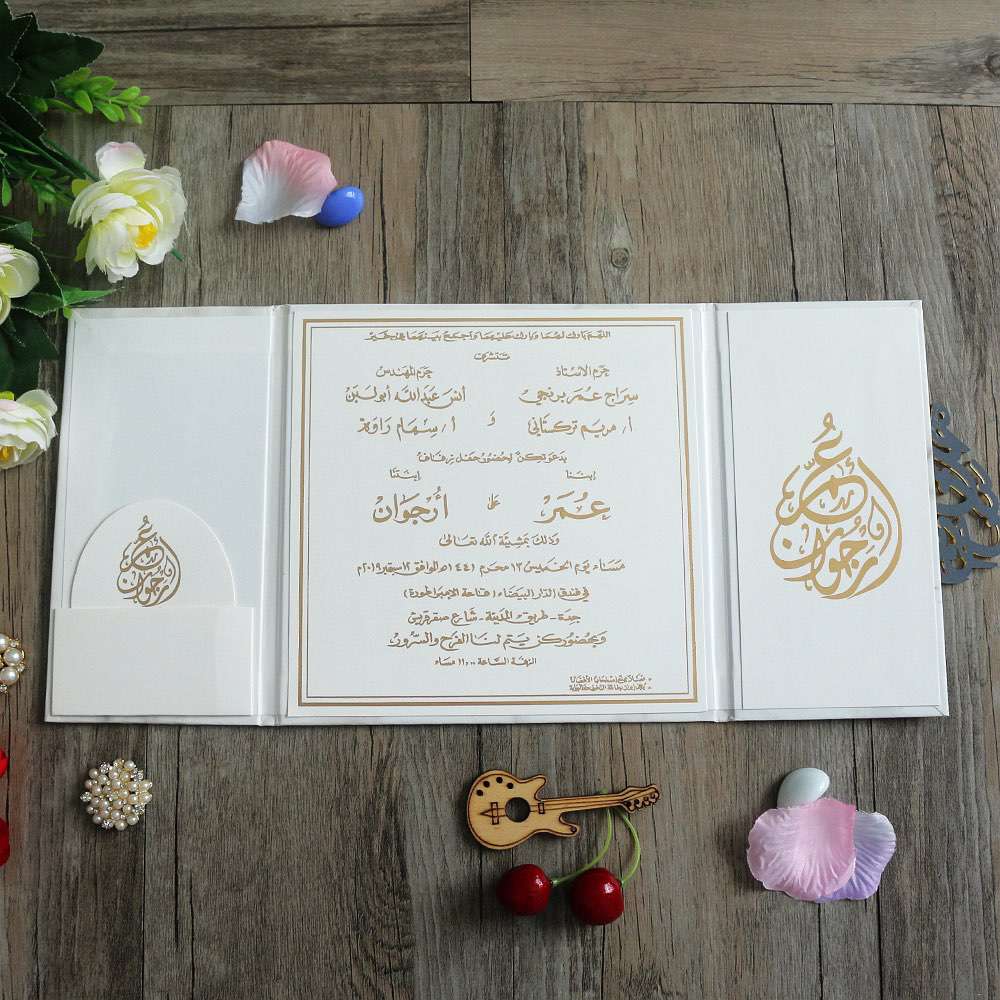 اللهم بارك لهما وبارك عليهما واجمع بينهما في خير
تتشرف
حرم الأستاذ
حرم المهندس
سراج عمر برنجي
أنس عبدالله أبولبن
أ/ مريم تركستاني
و
أ/ سهام راوة
بدعوتكن لحضور حفل زفاف
إبننا
إبنتنا
عمر
على
أرجوان
وذلك بمشيئة الله تعالى
مساء يوم الخميس ١٣ محرم ١٤٤١هـ الموافق ١٢ سبتمبر ٢٠١٩م
في فندق الدار البيضاء (قاعة الأميرة)
جدة - طريق المدينة - شارع صقر قريش
وبحضوركن يتم لنا الفرح والسرور
الزفة الساعة ١١،٠٠ مساء
عمر
أرجوان
عمر
أرجوان